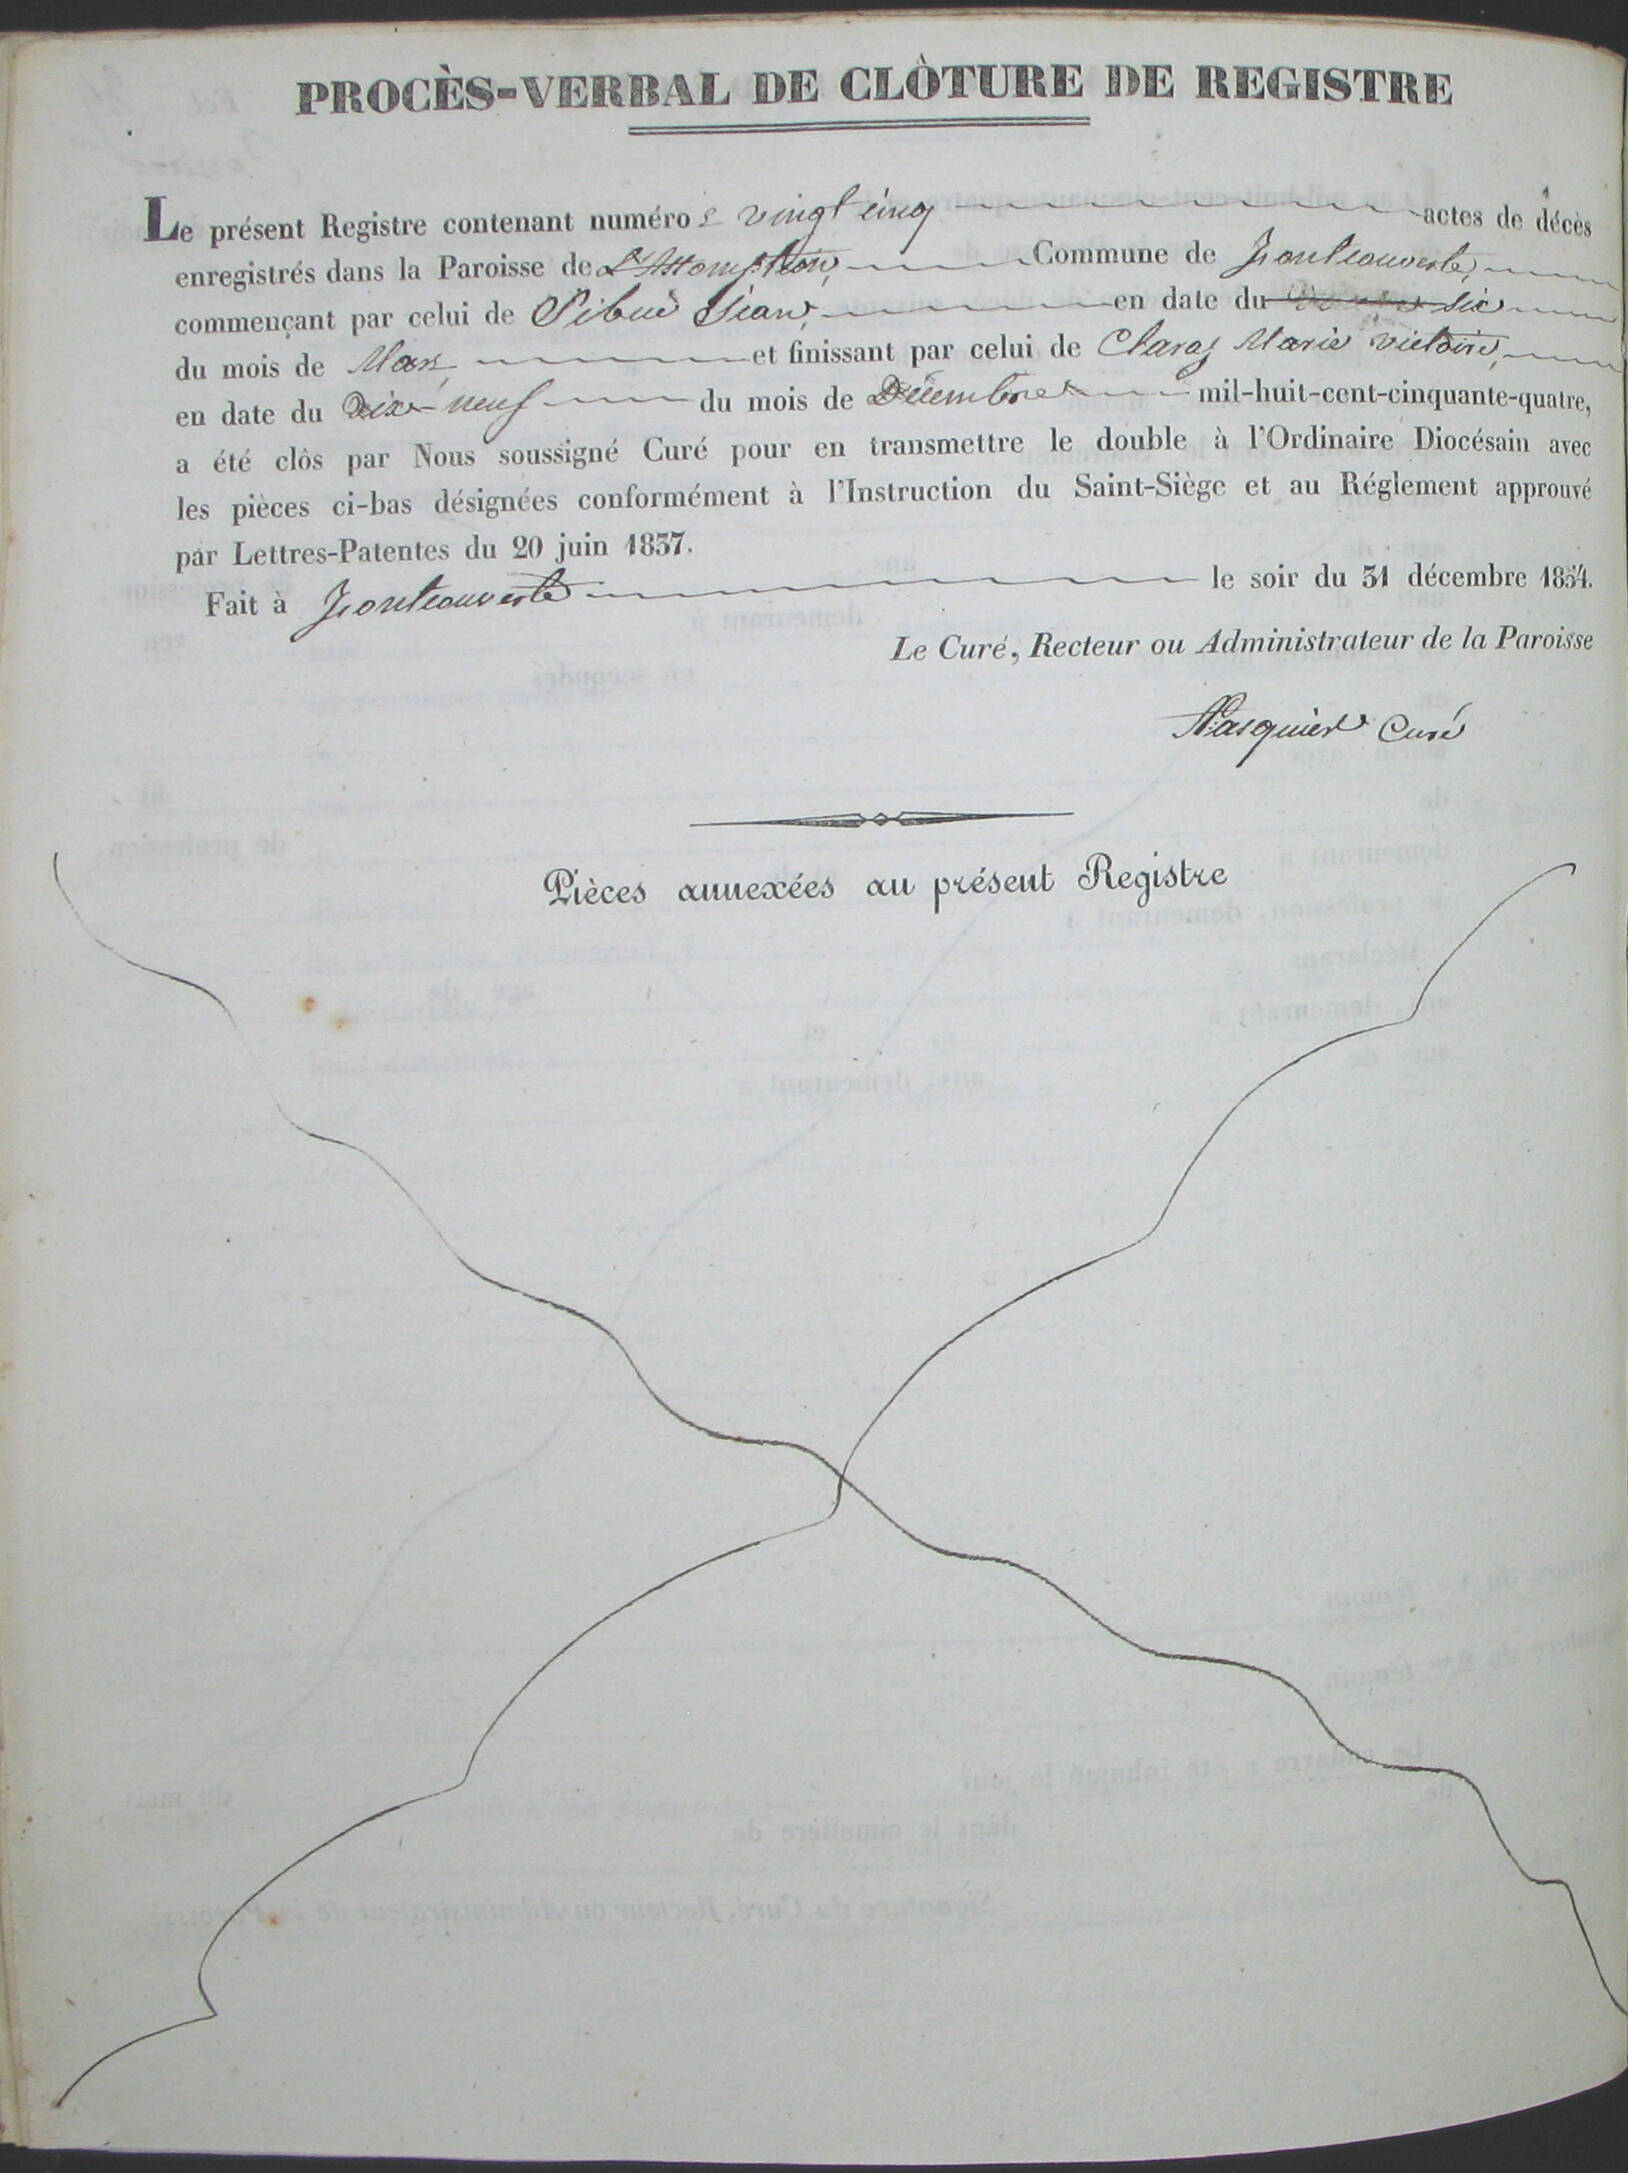 PROCÈS-VERBAL DE CLÔTURE DE REGISTRE
Le présent Registre contenant numéros vingt cinq actes de décès
enregistrés dans la Paroisse de L'Assomption, Commune de Fontcouverte,
commençant par celui de Sibué Jean, en date du six
du mois de Mars et finissant par celui de Claraz Marie victoire,
en date du Dix-neuf du mois de Décembre mil-huit-cent-cinquante-quatre,
a été clòs par Nous soussigné Curé pour en transmettre le double à l'Ordinaire Diocésain avec
les pièces ci-bas désignées conformément à l'Instruction du Saint-Siège et au Réglement approuvé
par Lettres-Patentes du 20 juin 1837.
Fait à Fontcouverte le soir du 31 décembre 1854.
Le Curé, Recteur ou Administrateur de la Paroisse
Pasquier Curé
Pièces annexées au présent Registre